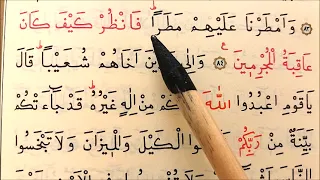 وَاَمْطَرْنَا عَلَيْهِمْ مَطَرًاۜ فَانْظُرْ كَيْفَ كَانَ
عَاقِبَةُ الْمُجْرِمٖينَ ۟ ٨٤ اَخَاهُمْ شُعَيْبًاۜ قَالَ
يَاقَوْمِ اعْبُدُوا اللّٰهَ مِنْ اِلٰهٍ غَيْرُهُۜ قَدْ جَٓاءَتْكُمْ
بَيِّنَةٌ مِنْ رَبِّكُمْ الْكَيْلَ وَالْمٖيزَانَ وَلَا تَبْخَسُوا